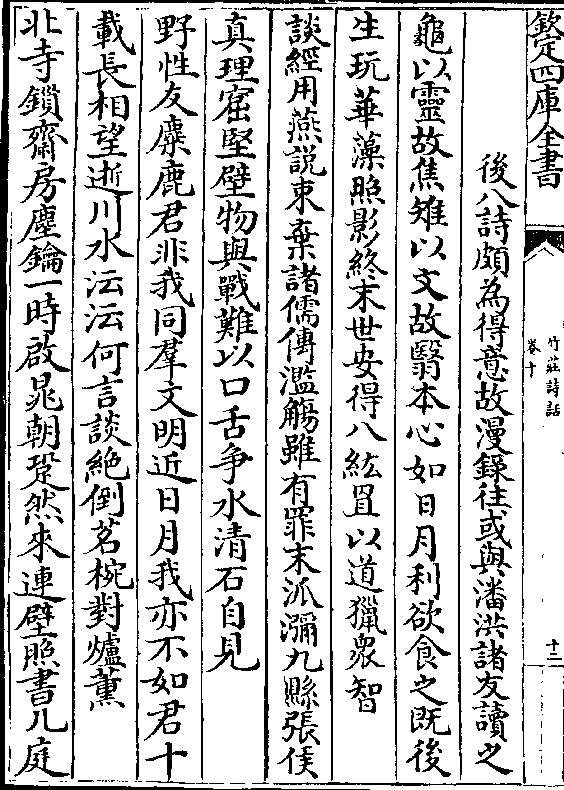 欽定四庫全書
竹莊詩話
卷十
十二
後八詩頗為得意故漫錄往或與潘洪諸友讀之
龜以靈故焦雉以文故翳本心如日月利欲食之既後
生玩華藻照影終末世安得八紘罝以道獵衆智
談經用燕說束棄諸儒傳濫觴雖有罪末派瀰九縣張侯
真理窟堅壁物與戰難以口舌争水清石自見
野性友麋鹿君非我同羣文明近日月我亦不如君十
載長相望逝川水沄沄何言談絶倒茗椀對爐薰
北寺鎖齋房塵鑰一時啟晁朝跫然來連壁照書几庭